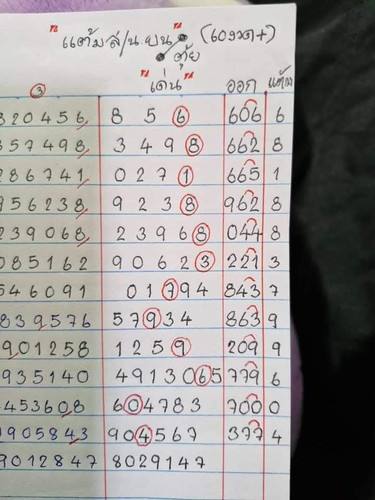 แต้ม ส/น.บน (เองวด+)
ตุ้ย
③ เด่น ออก แต้ม
320456 8 5 6 606 6
357498 3 4 9 8 662 8
286741 0 2 7 1 665 1
956238 9 2 3 8 962 8
239068 2 3 9 6 8 044 8
085162 9 0 6 2 3 221 3
546091 0 1 7 9 4 843 7
839576 5 7 9 3 4 863 9
901258 1 2 5 9 209 9
935140 4 9 1 3 0 6 5 779 6
453608 6 0 4 7 8 3 700 0
905843 9 0 4 5 6 7 377 4
9012847 8029147